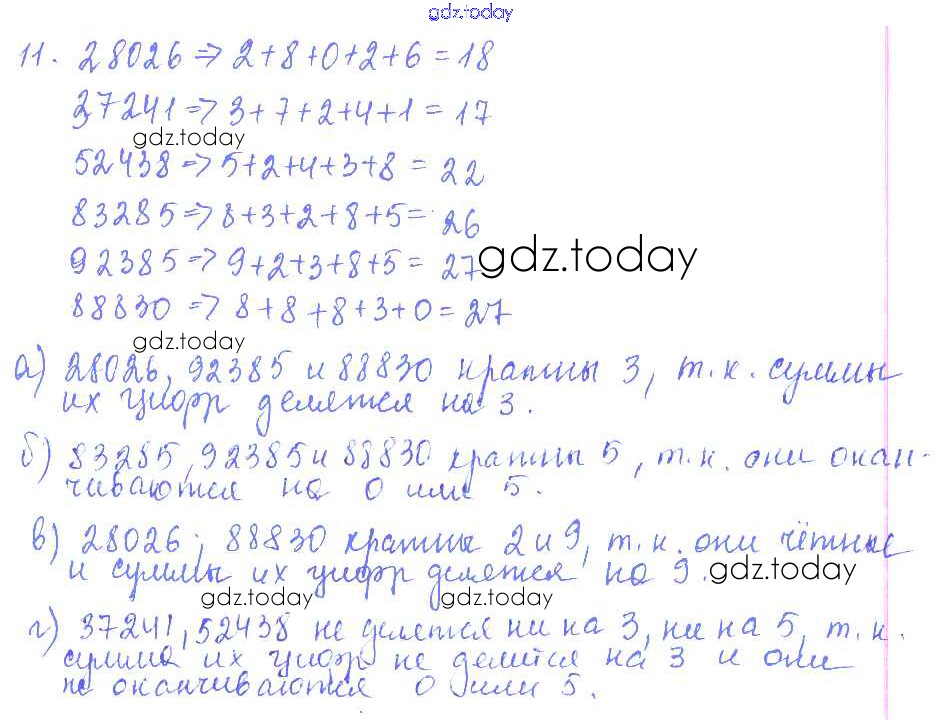 gdz.today
11. 28026 => 2+8+0+2+6=18
37241 => 3+7+2+4+1=17
gdz.today
52438 => 5+2+4+3+8 = 22
83285 => 8+3+2+8+5= 26
92385 => 9+2+3+8+5= 27 gdz.today
88830 => 8+8+8+3+0=27
gdz.today
а) 28026, 92385 и 88830 кратны 3, т.к. суммы
их цифр делятся на 3.
б) 83285, 92385 и 88830 кратны 5, т.к. они окан-
чиваются на 0 или 5.
в) 28026; 88830 кратны 2 и 9, т.к. они чётные
и суммы их цифр делятся на 9. gdz.today
gdz.today gdz.today
г) 37241, 52438 не делятся ни на 3, ни на 5, т.к.
сумма их цифр не делится на 3 и они
не оканчиваются 0 или 5.